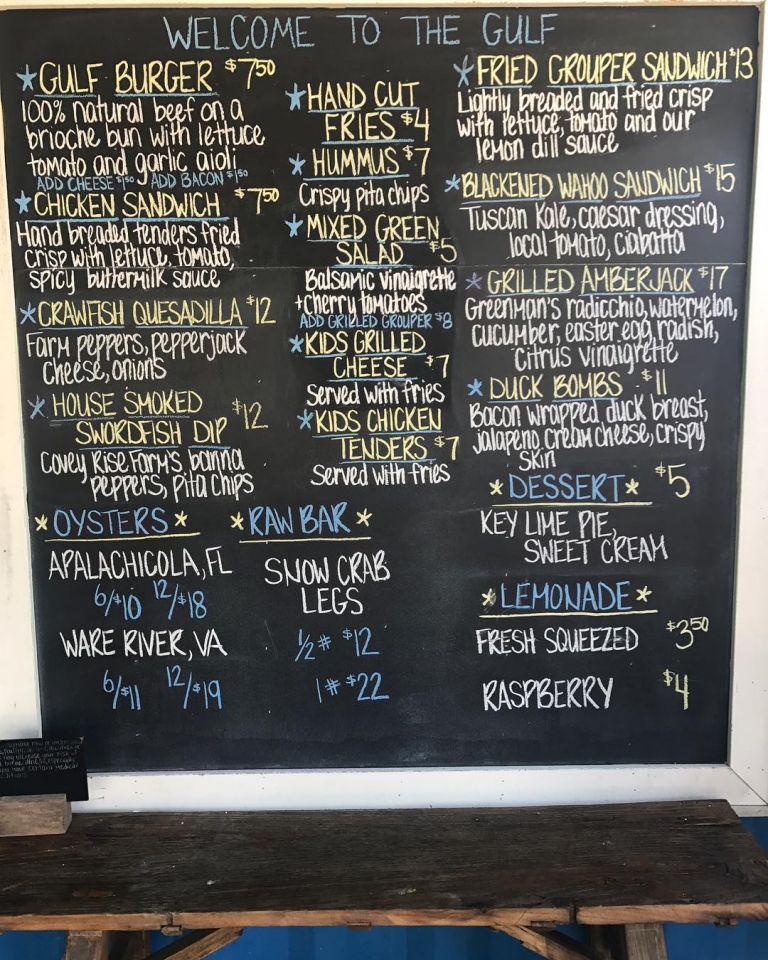 WELCOME TO THE GULF
GULF BURGER $7.50
100% natural beef on a
brioche bun with lettuce
tomato and garlic aioli
ADD CHEESE $1.50 ADD BACON $1.50
CHICKEN SANDWICH $7.50
Hand breaded tenders fried
crisp with lettuce, tomato,
spicy buttermilk sauce
CRAWFISH QUESADILLA $12
Farm peppers, pepperjack
cheese, onions
HOUSE SMOKED
SWORDFISH DIP $12
Covey Rise Farm's, banna
peppers, pita chips
HAND CUT
FRIES $4
HUMMUS $7
Crispy pita chips
MIXED GREEN
SALAD $5
Balsamic vinaigrette
+cherry tomatoes
ADD GRILLED GROUPER $8
KIDS GRILLED
CHEESE $7
Served with fries
KIDS CHICKEN
TENDERS $7
Served with fries
FRIED GROUPER SANDWICH $13
Lightly breaded and fried crisp
with lettuce, tomato and our
lemon dill sauce
BLACKENED WAHOO SANDWICH $15
Tuscan Kale, caesar dressing,
local tomato, ciabatta
GRILLED AMBERJACK $17
Greenman's radicchio, watermelon,
cucumber, easter egg radish,
citrus vinaigrette
DUCK BOMBS $11
Bacon wrapped duck breast,
jalapeno cream cheese, crispy
skin
OYSTERS
APALACHICOLA, FL
6/$10 12/$18
WARE RIVER, VA
6/$11 12/$19
RAW BAR
SNOW CRAB
LEGS
1/2# $12
1# $22
DESSERT $5
KEY LIME PIE,
SWEET CREAM
LEMONADE
FRESH SQUEEZED $3.50
RASPBERRY $4